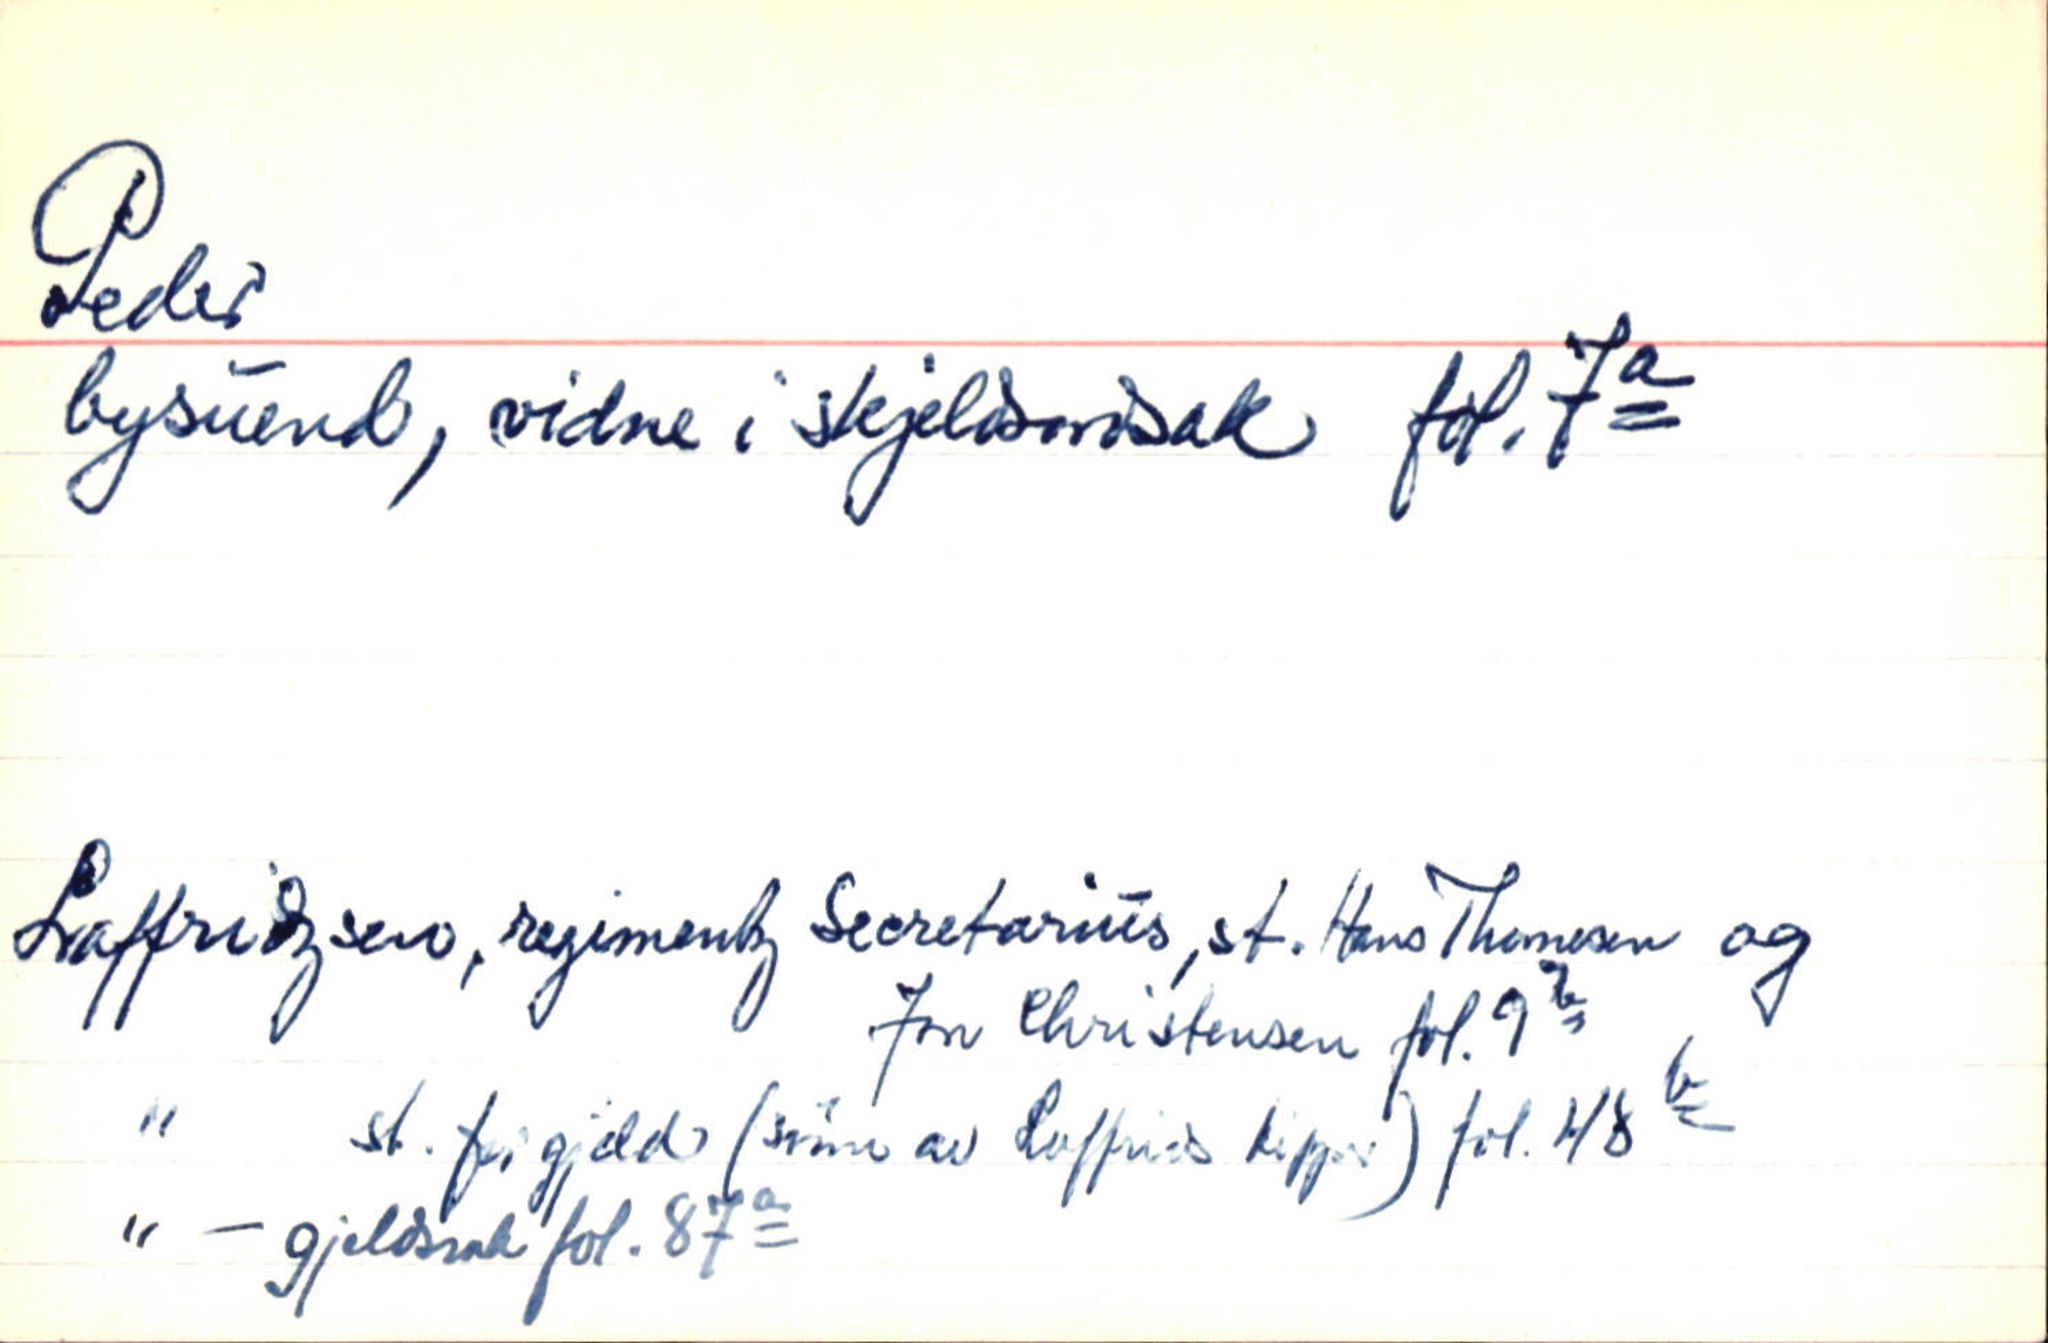 Peder
bysuend, vidne i skjeldsordsak fol. 7a
Laffridzsen, regimentz Secretarius, st. Hans Thomesen og
Jon Christensen fol. 9b
" st. for gjeld (sønn av Laffrids) fol. 48b
" — gjeldssak fol. 87a